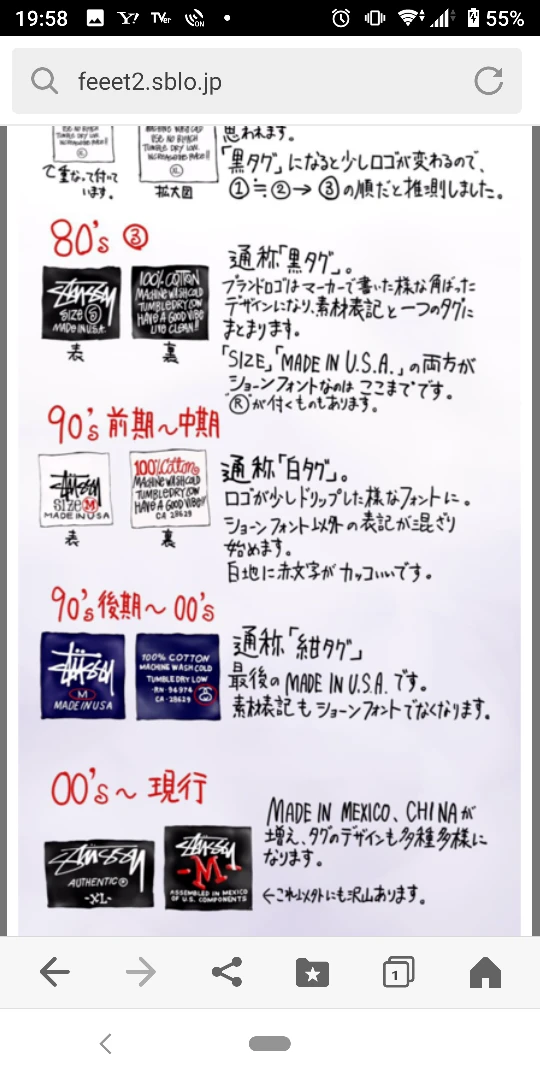 19:58
Y!
TVer
ON
55%
feeet2.sblo.jp
USE NO BLEACH
TUMBLE DRY LOW
思われます。
「黒タグ」になると少しロゴが変わるので、
①≒②→③の順だと推測しました。
で重なって付いて
います。
拡大図
80's ③
通称「黒タグ」。
ブランドロゴはマーカーで書いた様な角ばった
デザインになり、素材表記と一つのタグに
まとまります。
「SIZE」「MADE IN U.S.A.」の両方が
ショーンフォントなのはここまでです。
Ⓡが付くものもあります。
STÜSSY
SIZE S
MADE IN U.S.A.
表
100% COTTON
MACHINE WASH COLD
TUMBLE DRY LOW
HAVE A GOOD VIBE
裏
90's 前期〜中期
STÜSSY
SIZE M
MADE IN USA
表
100% Cotton
MACHINE WASH COLD
TUMBLE DRY LOW
HAVE A GOOD VIBE!!
CA 28629
裏
通称「白タグ」。
ロゴが少しドリップした様なフォントに。
ショーンフォント以外の表記が混ざり
始めます。
白地に赤文字がカッコいいです。
90's 後期〜00's
STÜSSY
M
MADE IN USA
100% COTTON
MACHINE WASH COLD
TUMBLE DRY LOW
·RN·94974
CA·28629
通称「紺タグ」
最後のMADE IN U.S.A.です。
素材表記もショーンフォントでなくなります。
00's〜現行
STÜSSY
AUTHENTIC®
-XL-
STÜSSY
-M-
ASSEMBLED IN MEXICO
OF U.S. COMPONENTS
MADE IN MEXICO、CHINAが
増え、タグのデザインも多種多様に
なります。
←これ以外にも沢山あります。
1